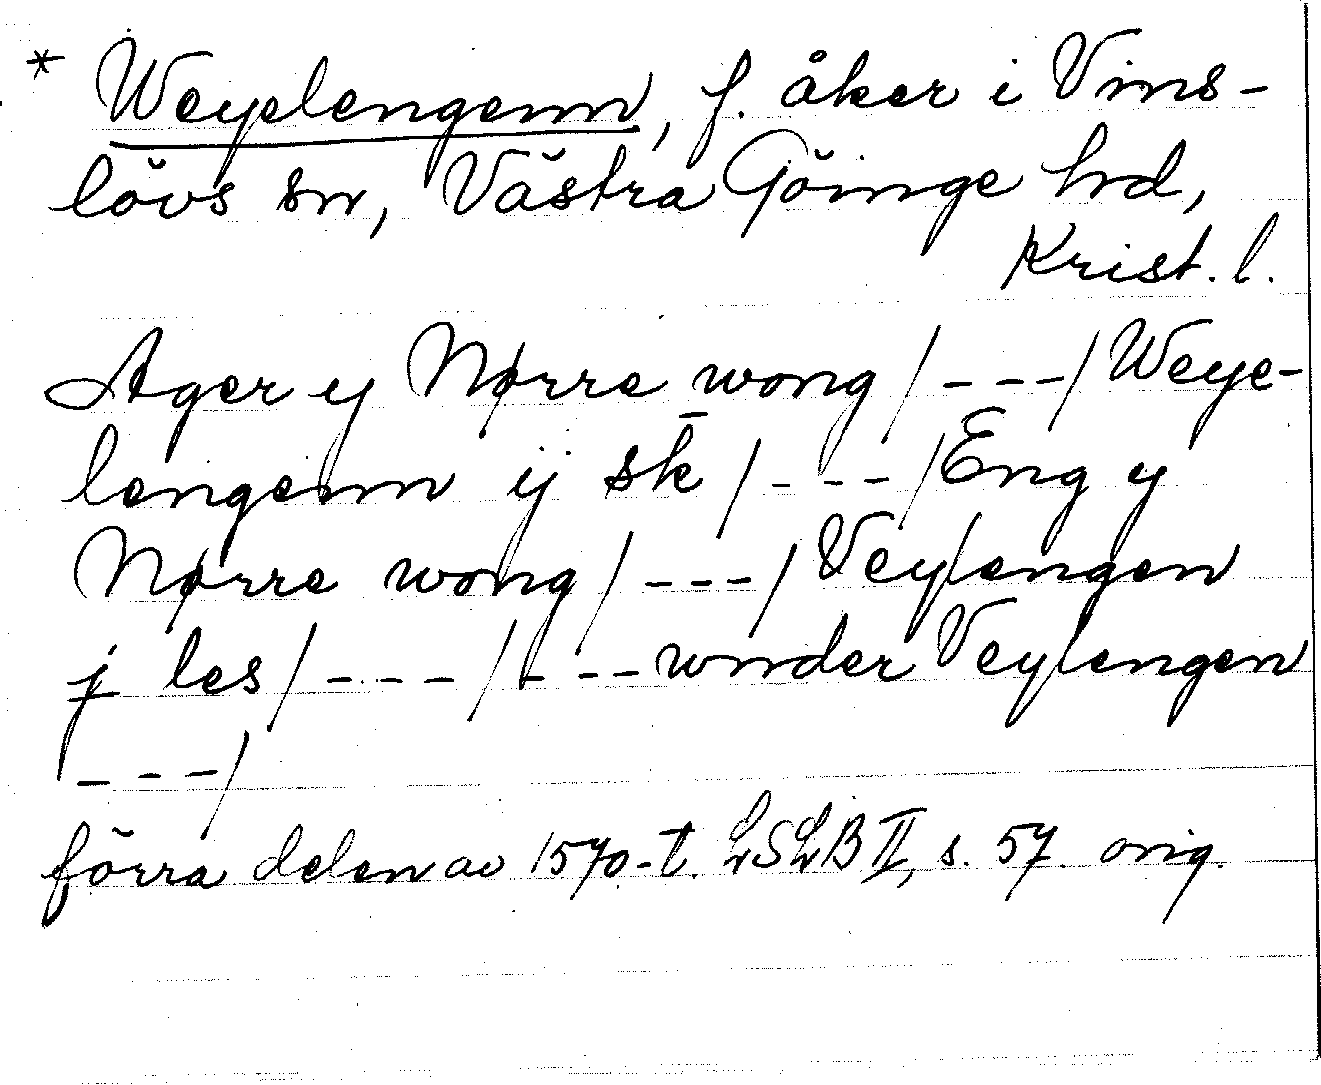 * Weyelengenn, f. åker i Vins-
lövs sn, Västra Göinge hd,
Krist. l.
Ager y Nørre wong /---/ Weye-
lengenn ij sk̄ /---/ Eng y
Nørre wong /---/ Veylengen
j les /---/ --- wnder Veylengen
---/
förra delen av 1570-t. LSLB II, s. 57. orig.